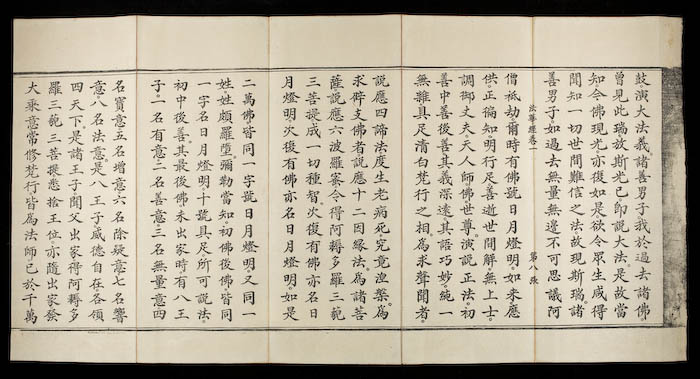 鼓演大法義諸善男子我於過去諸佛。
曾見此瑞放斯光已。即說大法是故當
知。今佛現光亦復如是欲令眾生咸得
聞知一切世間難信之法故現斯瑞。諸
善男子。如過去無量無邊不可思議阿
法華經卷一 第八張
僧祇劫爾時有佛號日月燈明。如來應
供。正徧知明行足善逝世間解無上士。
調御丈夫天人師佛世尊。演說正法。初
善中善後善。其義深遠其語巧妙。純一
無雜具足清白梵行之相。為求聲聞者。
說應四諦法度生老病死。究竟涅槃。為
求辟支佛者說應十二因緣法。為諸菩
薩說應六波羅蜜令得阿耨多羅三藐
三菩提成一切種智次復有佛亦名日
月燈明。次復有佛亦名日月燈明。如是
二萬佛皆同一字號日月燈明。又同一
姓。姓頗羅墮。彌勒當知。初佛後佛皆同
一字名日月燈明十號具足所可說法。
初中後善。其最後佛未出家時有八王
子。一名有意二名善意三名無量意四
名寶意五名增意六名除疑意七名響
意八名法意是八王子威德自在各領
四天下。是諸王子聞父出家得阿耨多
羅三藐三菩提悉捨王位。亦隨出家發
大乘意常修梵行皆為法師已於千萬